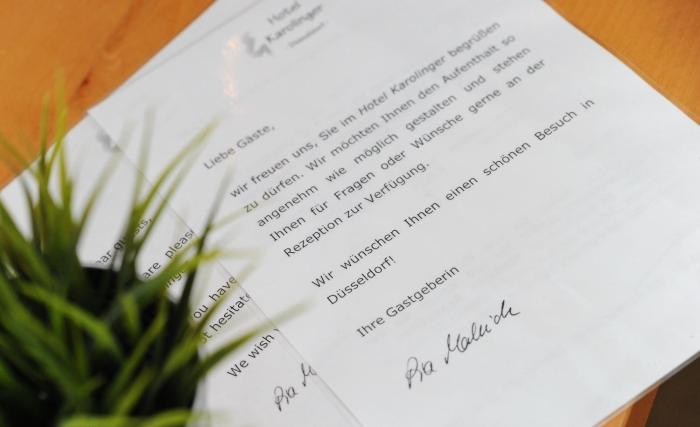 Hotel
Karolinger
Düsseldorf
Liebe Gäste,
wir freuen uns, Sie im Hotel Karolinger begrüßen
zu dürfen. Wir möchten Ihnen den Aufenthalt so
angenehm wie möglich gestalten und stehen
Ihnen für Fragen oder Wünsche gerne an der
Rezeption zur Verfügung.
Wir wünschen Ihnen einen schönen Besuch in
Düsseldorf!
Ihre Gastgeberin
Pia
are pleas
ou have
t hesitat
We wish
Pia